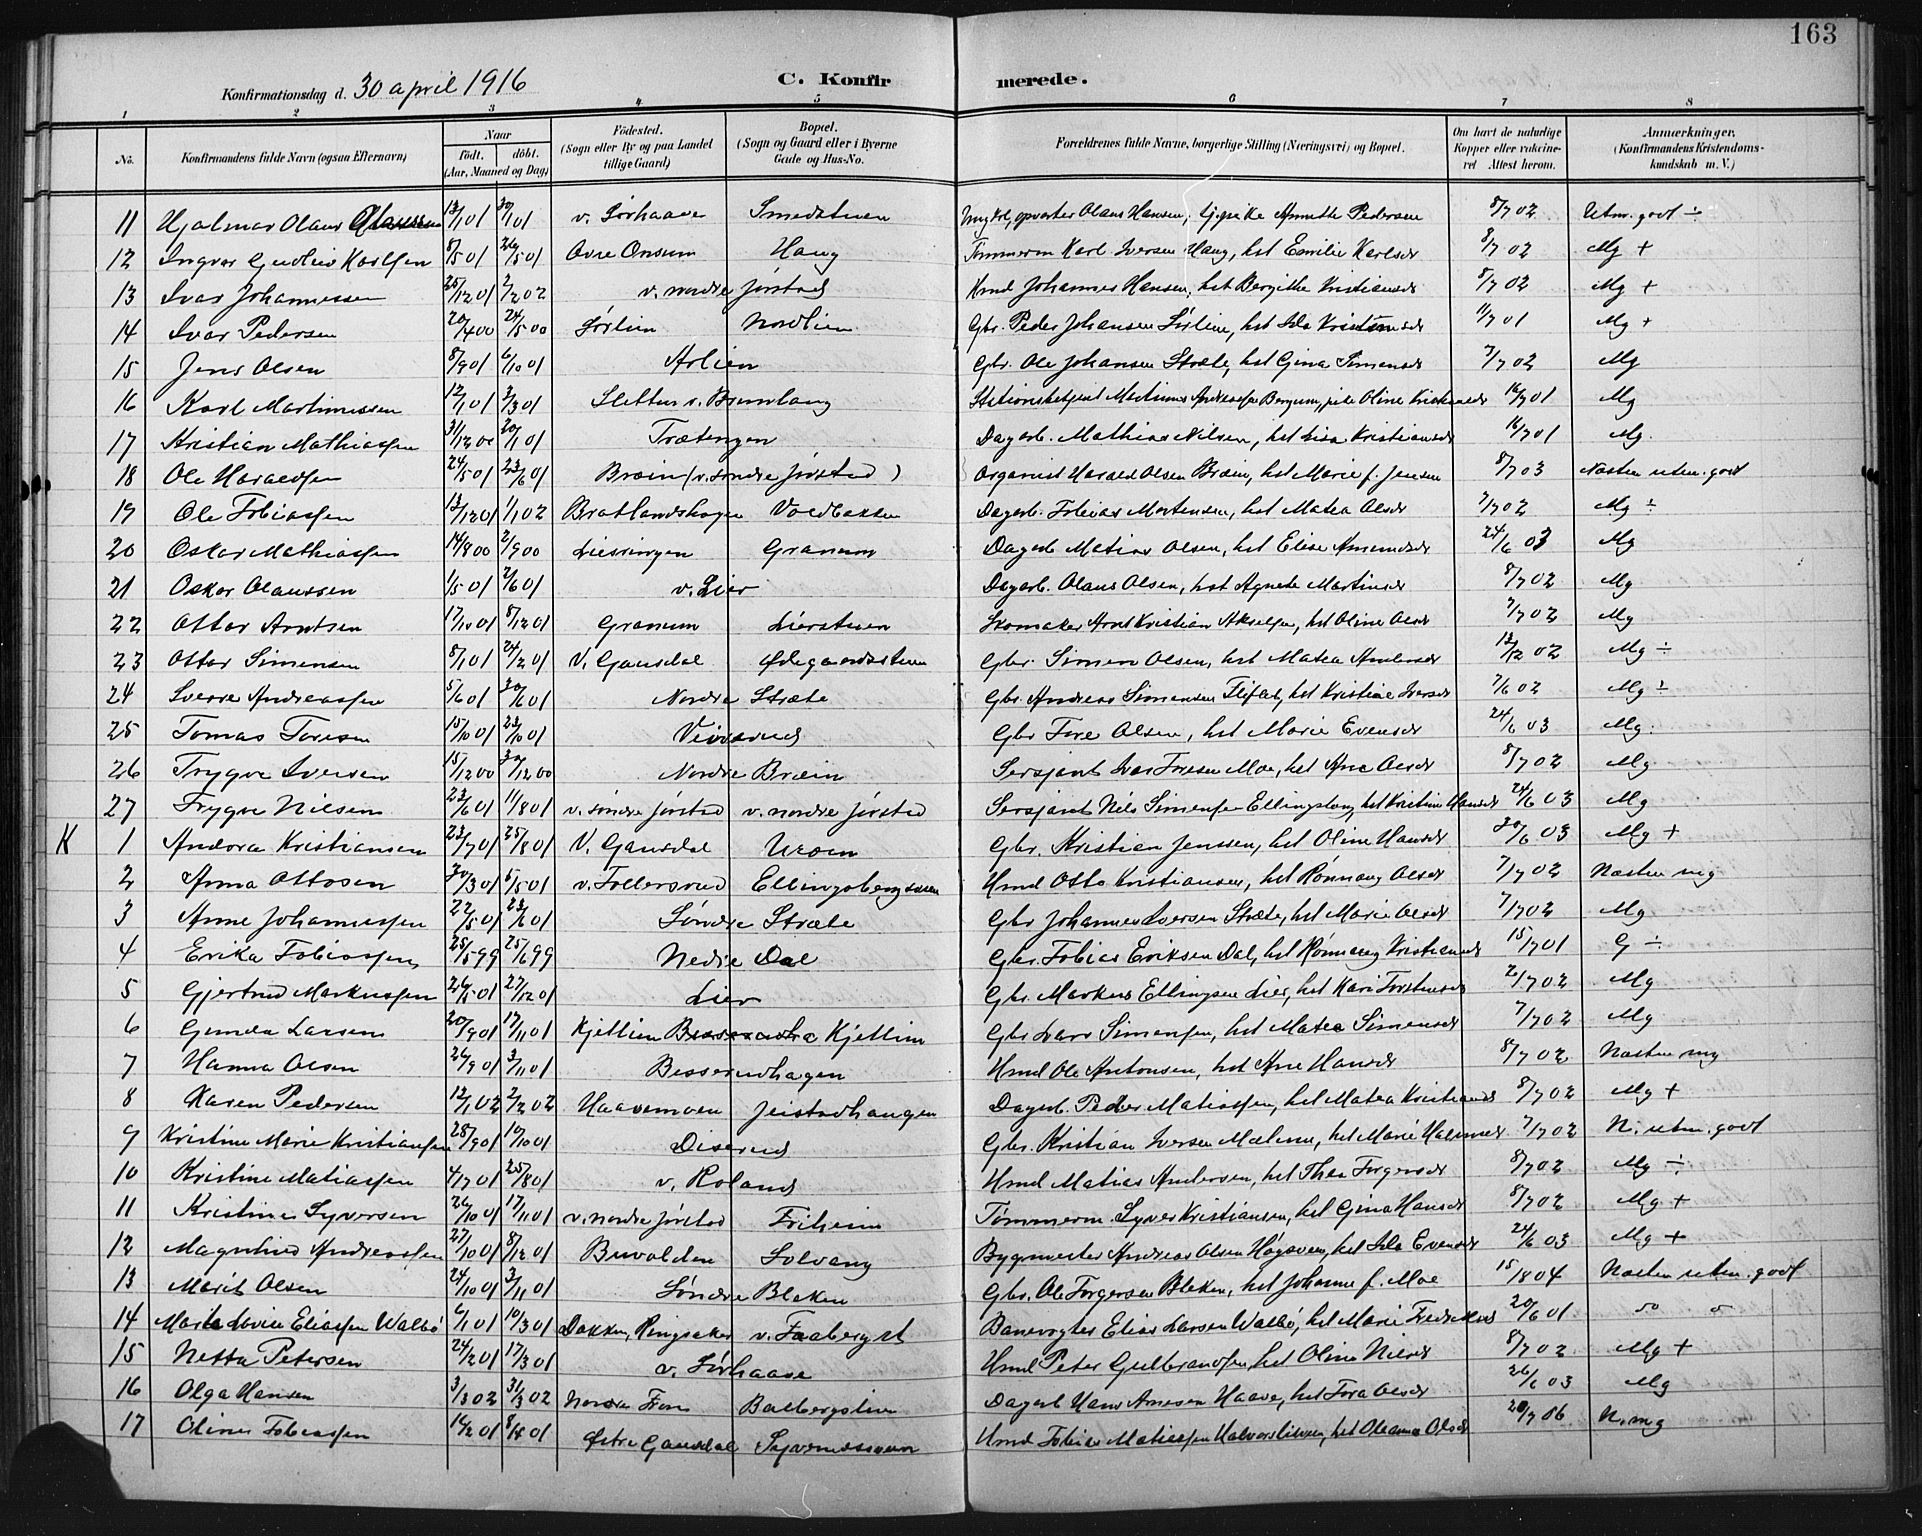 163
Konfirmationsdag d. 30 april 1916 C. Konfirmerede.
1 2 3 4 5 6 7 8
No. Konfirmandens fulde Navn (ogsaa Efternavn) Naar födt. döbt. (Aar, Maaned og Dag) Födested. (Sogn eller By og paa Landet tillige Gaard) Bopæl. (Sogn og Gaard eller i Byerne Gade og Hus-No. Forældrenes fulde Navne, borgerlige Stilling (Næringsvei) og Bopæl. Om havt de naturlige Kopper eller vaccineret Attest herom. Anmærkninger, (Konfirmandens Kristendomskundskab m. V.)
11 Hjalmar Olaus 13/1 01 30/1 01 v. Sørhaave Smedstuen Olaus Hansen, Annette Pedersen 8/7 02 Utm. godt ÷
12 Ingvar Gudleiv Karlsen 8/5 01 26/5 01 Øvre Onsum Haug Tømmerm Karl Iversen Haug, hst Emilie Karlsdt 8/7 02 Mg +
13 Ivar Johannessen 25/12 01 2/2 02 v. nordre Jørstad Hmd Johannes Hansen, hst Bergitte Kristiansdt 8/7 02 Mg +
14 Ivar Pedersen 20/4 00 24/5 00 Sørlien Nordlien Gbr. Peder Johansen Sørlien, hst Ida Kristensdt 11/7 01 Mg +
15 Jens Olsen 8/9 01 6/10 01 Aolien Gbr. Ole Johansen Stræte, hst Gina Simensdt 7/7 02 Mg
16 Karl Martinussen 12/1 01 3/3 01 Sletten v. Brunlaug Stationsbetjent Martinus Andreassen Bergum, Oline 16/7 01 Mg
17 Kristian Mathiassen 31/12 00 20/1 01 Trætengen Dagarb. Mathias Nilsen, hst Lisa Kristiansdt 16/7 01 Mg.
18 Ole Haraldsen 24/5 01 23/6 01 Bræin (v. søndre Jørstad) Organist Harald Olsen Bræin, hst Marie f. Jensen 8/7 03 Næsten utm. godt
19 Ole Tobiassen 13/12 01 1/1 02 Bratlandshagen Voldbakken Dagarb. Tobias Mortensen, hst Matea Olsdt 7/7 02 Mg ÷
20 Oskar Mathiassen 14/8 00 2/9 00 Liesvingen Granum Dagarb Matias Olsen, hst Elise Amundsdt 24/6 03 Mg
21 Oskar Olaussen 1/5 01 2/6 01 v. Lier Dagarb. Olaus Olsen, hst Agnete Martinsdt 8/7 02 Mg
22 Ottar Arntsen 17/10 01 8/12 01 Granum Lierstuen Skomaker Arnt Kristian Akselsen, hst Oline Olsdt 7/7 02 Mg
23 Ottar Simensen 8/1 01 24/2 01 V. Gausdal Ødegaardsstuen Gbr. Simen Olsen, hst Matea Andersdt 13/12 02 Mg ÷
24 Sverre Andreassen 5/6 01 30/6 01 Nordre Stræte Gbr Andreas Simensen Fliflet, hst Kristine Iversdt 7/6 02 Mg ÷
25 Tomas Toresen 15/10 01 23/10 01 Gbr Tore Olsen, hst Marie Evensdt 24/6 03 Mg.
26 Trygve Iversen 15/12 00 30/12 00 Nordre Bræin Sersjant Iver Toresen Moe, hst Ane Olsdt 8/7 02 Mg.
27 Trygve Nilsen 23/6 01 11/8 01 v. søndre Jørstad v. nordre Jørstad Sersjant Nils Simensen Ellingsberg, hst Kristine Hansdt 24/6 03 Mg
K 1 Andora Kristiansen 23/7 01 25/8 01 V. Gausdal Uroen Gbr. Kristian Jenssen, hst Oline Hansdt 30/6 03 Mg +
2 Anna Ottosen 30/3 01 6/5 01 v. Follersrud Ellingsbergsveen Hmd Otto Kristiansen, hst Rønnaug Olsdt 7/7 02 Næsten mg
3 Anne Johannessen 22/5 01 23/6 01 Søndre Stræte Gbr Johannes Iversen Stræte, hst Marie Olsdt 7/7 02 Mg
4 Erika Tobiassen 25/5 99 25/6 99 Nedre Dal Gbr. Tobias Eriksen Dal, hst Rønnaug Kristiansdt 15/7 01 G ÷
5 Gjertrud Markussen 27/12 01 Lier Gbr. Markus Ellingsen Lier, hst Kari Torstensdt 2/7 02 Mg
6 Gunda Larsen 20/9 01 17/11 01 Kjetlien Kjetlien Gbr Lars Simensen, hst Matea Simensdt 7/7 02 Mg
7 Hanna Olsen 26/9 01 3/11 01 Besserudhagen Hmd Ole Antonsen, hst Ane Hansdt 8/7 02 Næsten mg
8 Karen Pedersen 12/1 02 2/2 02 Haavemoen Jeistadhaugen Dagarb. Peder Matiassen, hst Matea Kristiansdt 8/7 02 Mg +
9 Kristine Marie Kristiansen 28/9 01 19/10 01 Diserud Gbr. Kristian Iversen Mælum, hst Marie 7/7 02 N. utm. godt
10 Kristine Matiassen 4/7 01 25/8 01 v. Roland Hmd Matias Andersen, hst Thea Torgersdt 8/7 02 Mg ÷
11 Kristine Syversen 26/10 01 17/11 01 v. nordre Jørstad Friheim Tømmerm. Syver Kristiansen, hst Gina Hansdt 8/7 02 Mg +
12 Magnhild Andreassen 27/10 01 8/12 01 Buvolden Solvang Bygmester Andreas Olsen Høgsveen, hst Ida Evensdt 24/6 03 Mg +
13 Marit Olsen 24/10 01 3/11 01 Søndre Bleken Gbr. Ole Torgersen Bleken, hst Johanne f. Moe 15/8 04 Næsten utm. godt
14 Marie Lovise Eliassen Walbø 6/1 01 10/3 01 Dokken, Ringsaker v. Faaberg st Banevogter Elias Larsen Walbø, hst Marie Fredriksdt 20/6 01
15 Netta Petersen 24/2 01 17/3 01 v. Sørhaave Hmd Peter Gulbrandsen, hst Oline Nilsdt 8/7 02 Mg +
16 Olga Hansen 3/3 02 31/3 02 Nordre Fron Balbergslien Dagarb Hans Arnesen Haave, hst Tora Olsdt 26/6 03 Mg
17 Oline Tobiassen 14/2 01 8/4 01 Østre Gausdal Hmd Tobias Matiassen Halvorsliveen, hst Oleanna Olsdt 20/7 06 N. mg